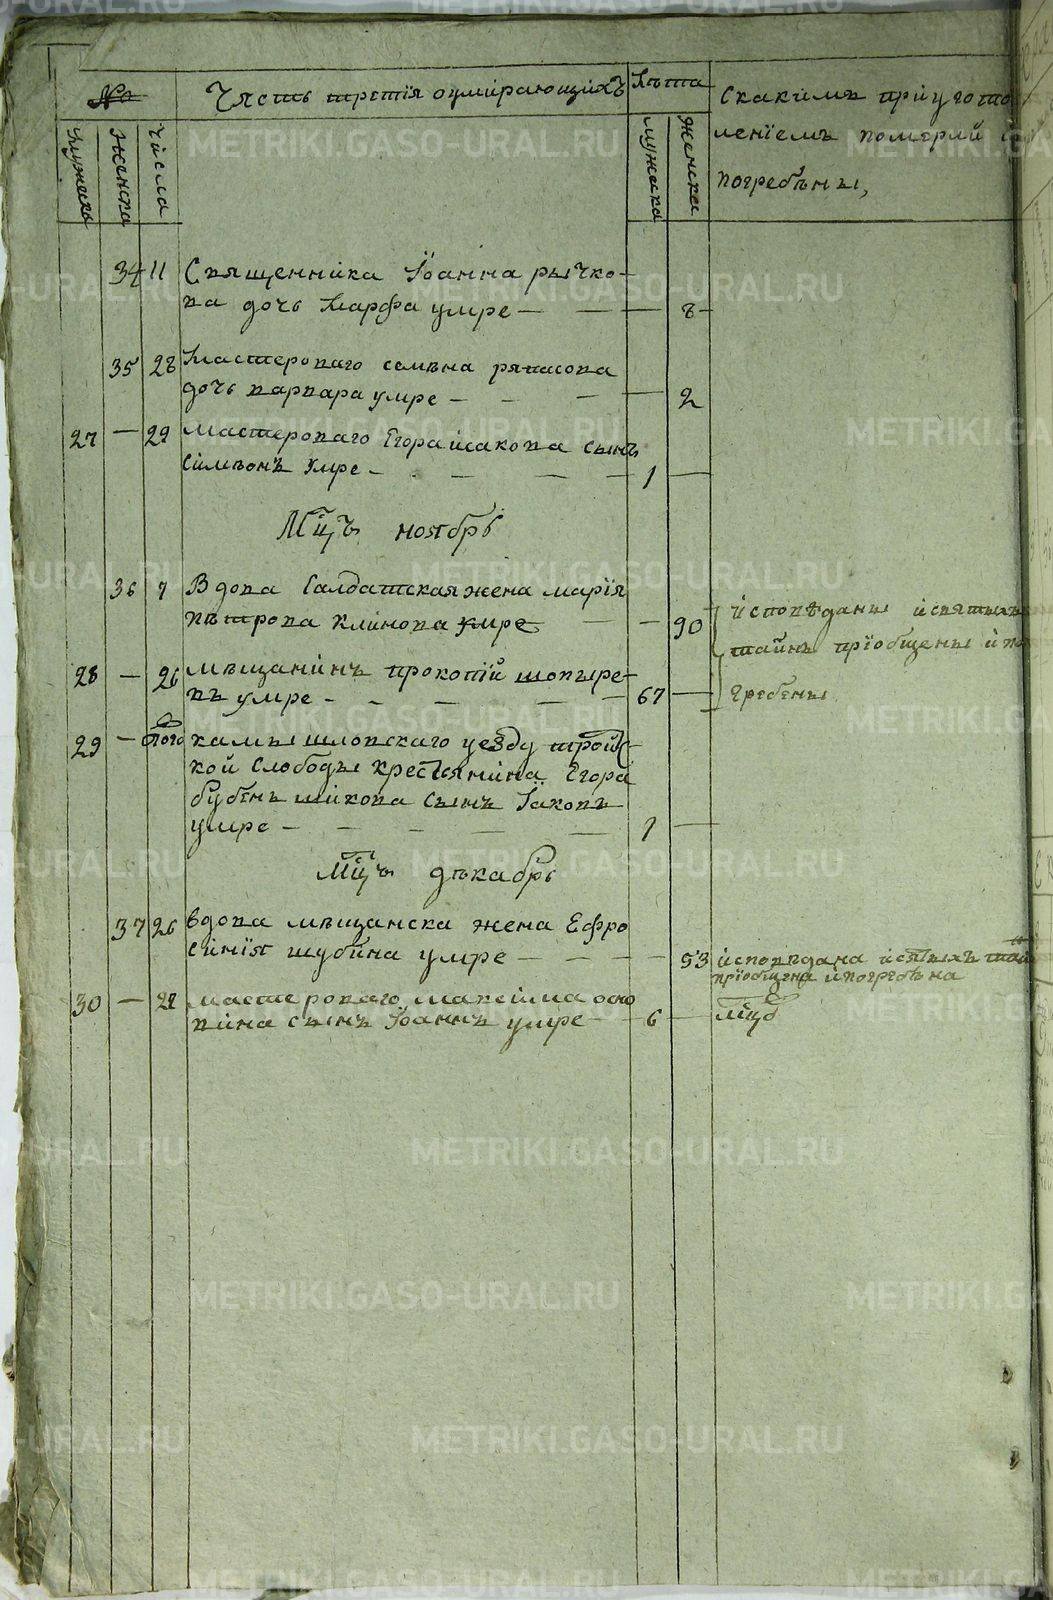 №
Часть третїя оумирающихъ
Лѣта
Скакимъ приугото
влениемъ померли и
погребены,
мужеска
женска
числа
мужеска
женска
34 11 Священника Iоанна рычко-
ва дочь Марфа умре — — — 8 —
35 28 Мастероваго семена
дочь варвара умре — — — — 2
27 — 29 мастероваго Егора исакова сынъ
симеонъ умре — — — 1 —
Мцъ ноябрь
36 7 Вдова Салдатская жена марїя
петрова климова умре — — 90
исповѣданы исвятыхъ
таинъ прїобщены ипо
гребены
28 — 26 мѣщанинъ прокопїй шопыре-
въ умре — — — — — 67 —
29 — того камышловскаго уезду трой-
кой слободы крестянина Егора
сынъ Iаковъ
умре — — — — — 1 —
Мцъ декабрь
37 26 вдова мѣщанска жена Ефро
синїя шубина умре — — — — 53
исповѣдана исвятыхъ таи
прїобщена ипогребена
30 — 27 мастероваго максима осно
вина сынъ Iоаннъ умре — 6 —
METRIKI.GASO-URAL.RU